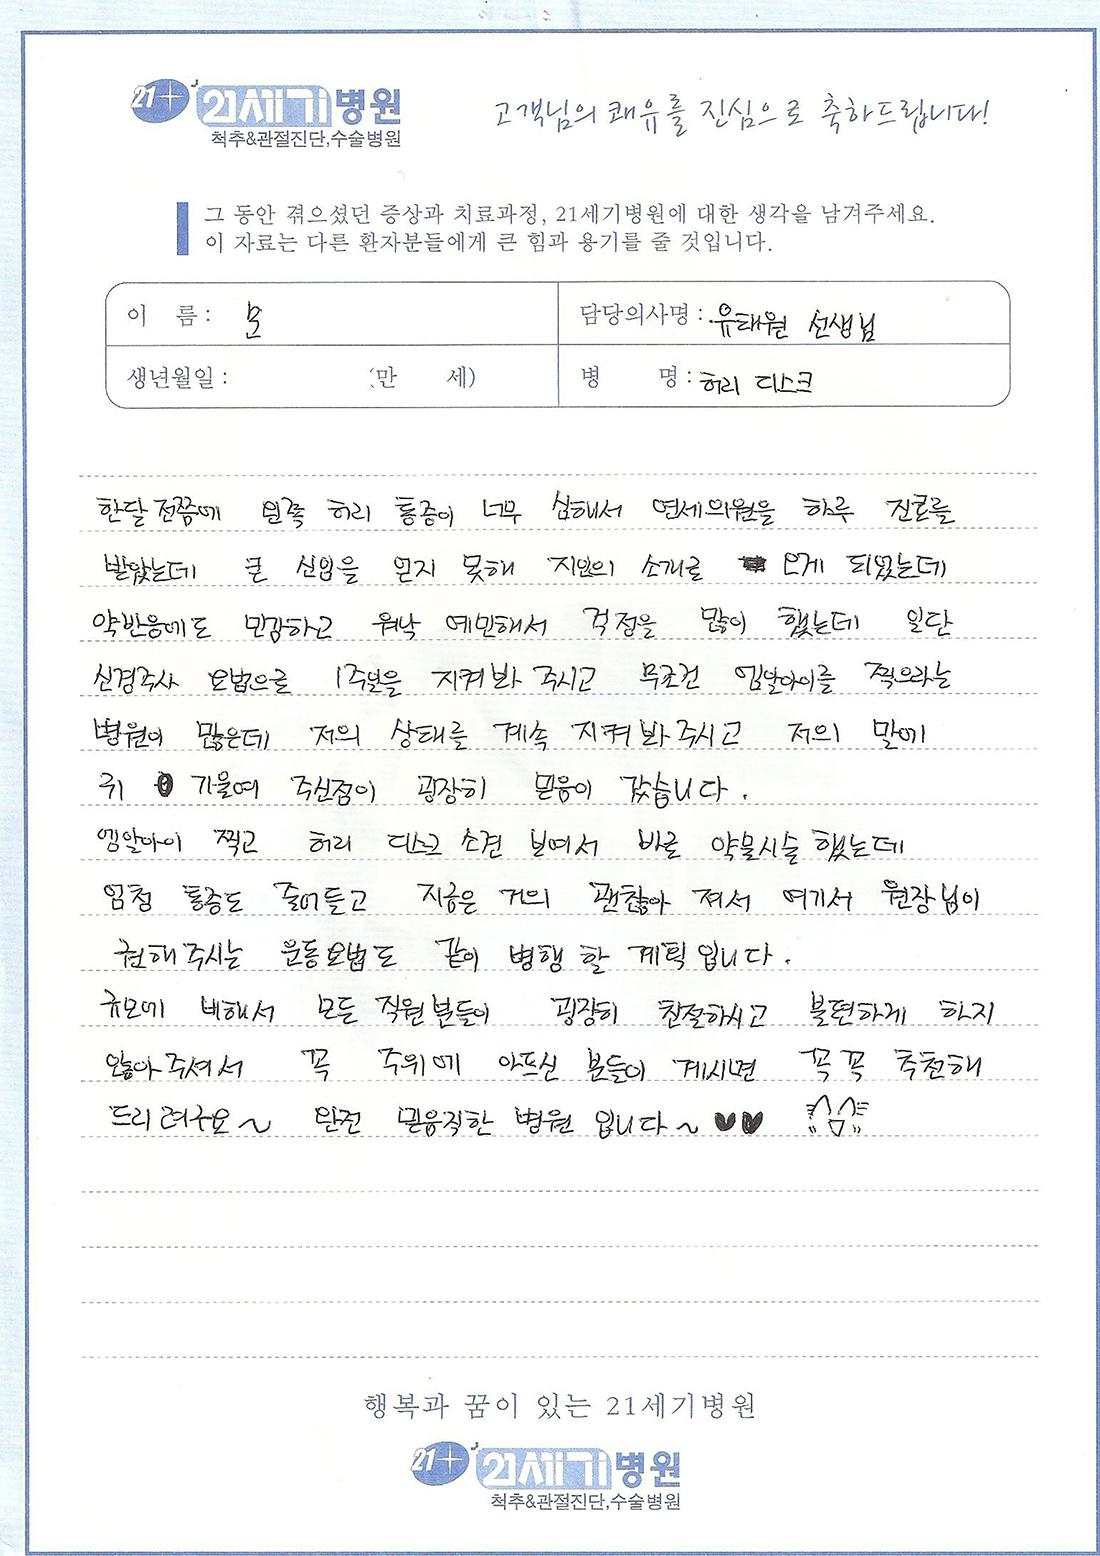 21+ 21세기병원
척추&관절진단,수술병원
고객님의 쾌유를 진심으로 축하드립니다!
그 동안 겪으셨던 증상과 치료과정, 21세기병원에 대한 생각을 남겨주세요.
이 자료는 다른 환자분들에게 큰 힘과 용기를 줄 것입니다.
이 름 : 문
담당의사명 : 유태원 선생님
생년월일 : (만 세)
병 명 : 허리 디스크
한달 전쯤에 왼쪽 허리 통증이 너무 심해서 연세의원을 하루 진료를
받았는데 큰 신임을 얻지 못해 지인의 소개로 오게 되었는데
약반응에도 민감하고 워낙 예민해서 걱정을 많이 했는데 일단
신경주사 요법으로 1주일을 지켜봐 주시고 무조건 엠알아이를 찍으라는
병원이 많은데 저의 상태를 계속 지켜봐 주시고 저의 말에
귀 기울여 주신점이 굉장히 믿음이 갔습니다.
엠알아이 찍고 허리 디스크 소견 보여서 바로 약물시술 했는데
엄청 통증도 줄어들고 지금은 거의 괜찮아 져서 여기서 원장님이
권해주시는 운동요법도 같이 병행 할 계획입니다.
규모에 비해서 모든 직원분들이 굉장히 친절하시고 불편하게 하지
않아주셔서 꼭 주위에 아프신 분들이 계시면 꼭꼭 추천해
드리려구요~ 완전 믿음직한 병원 입니다~ ♥♥
행복과 꿈이 있는 21세기병원
21+ 21세기병원
척추&관절진단,수술병원